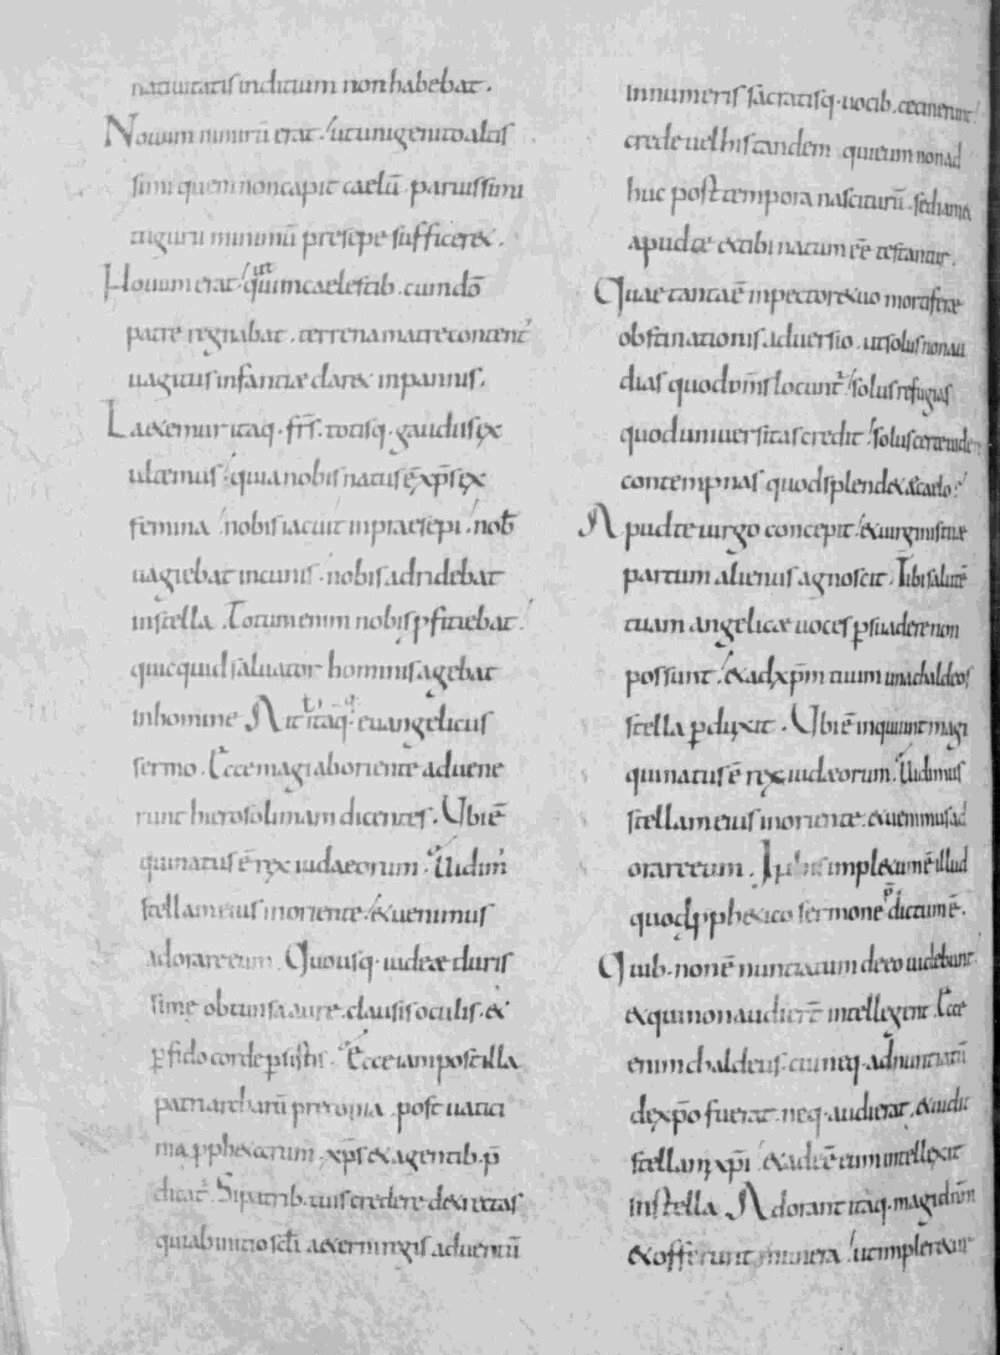 natiuitatis inditium non habebat.
Nouum nimirū erat. ut unigenito altis
simi quem non capit caelū. paruissimi
tugurii minimū presepe sufficeret.
Nouum erat. ut qui in caelestib. cum dō
patre regnabat. terrena matre content'
uagitus infantiae daret in pannis.
Laetemur itaq. frs̄. totisq. gaudiis ex
ultemus. quia nobis natus ē xp̄s ex
femina. nobis iacuit in praesepi. nob̄
uagiebat in cunis. nobis adridebat
in stella. Totum enim nobis pficiebat.
quicquid saluator hominis agebat
in homine. Ait itaq. euangelicus
sermo. Ecce magi ab oriente aduene
runt hierosolimam dicentes. Ubi ē
qui natus ē rex iudaeorum. Uidim'
stellam eius in oriente. & uenimus
adorare eum. Quousq. iudeae duris
sime obtunsa aure. clausis oculis. &
pfido corde psistis. Ecce iam post illa
patriarcharū preconia. post uatici
nia pphetarum. xp̄s et a gentib. p̄
dicat'. Si patrib. tuis credere detrectas
qui ab initio sc̄li aeterni regis aduentū
innumeris sacratisq. uocib. cecinerunt.
crede uel his tandem qui eum non ad
huc post tempora nasciturū. sed iam &
apud te & tibi natum eē testantur.
Quae tanta ē in pectore tuo mortiferae
obstinationis aduersio. ut solus non au
dias quod om̄s locunt'. solus refugias
quod uniuersitas credit. solus certe uidere
contempnas quod splendet a caelo?
Apud te uirgo concepit. & uirginis tuae
partum alienus agnoscit. Tibi salutē
tuam angelicae uoces psuadere non
possunt. & ad xp̄m tuum una chaldeos
stella pduxit. Ubi ē inquiunt magi
qui natus ē rex iudaeorum. Uidimus
stellam eius in oriente. & uenimus ad
orare eum. impletum ē illud
quod pphetico sermone p̄dictum ē.
Quib. non ē nuntiatum de eo uidebunt.
& qui non audiert̄ intellegent. Ecce
enim chaldeus. cui neq. adnuntiatū
de xp̄o fuerat. neq. audierat. & uidit
stellam xp̄i. & adeē eum intellexit
in stella. Adorant itaq. magi dn̄m
& offerunt munera. ut impleretur